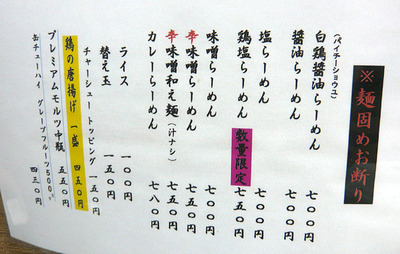 ※麺固めお断り
(パイチージョウユ)
白鶏醤油らーめん 七〇〇円
醤油らーめん 七〇〇円
塩らーめん 七〇〇円
鶏塩らーめん 数量限定 七五〇円
味噌らーめん 七〇〇円
辛味噌らーめん 七五〇円
辛味噌和え麺(汁ナシ) 七五〇円
カレーらーめん 七八〇円
ライス 一〇〇円
替え玉 一五〇円
チャーシュートッピング 一五〇円
鶏の唐揚げ 一盛 四五〇円
プレミアムモルツ中瓶 五五〇円
缶チューハイ グレープフルーツ500㎖ 四三〇円